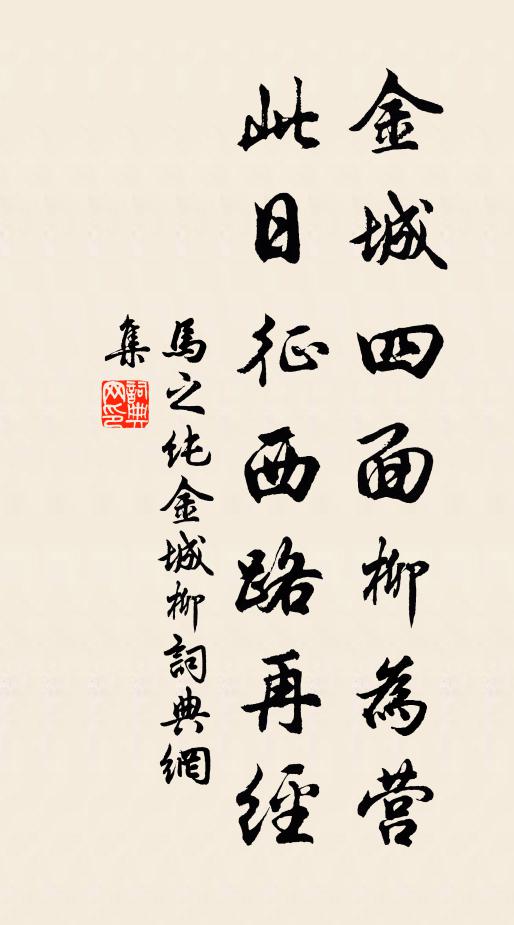 金城四面柳為营
此日征西路再經
馬之纯金城柳詞典網
集
詞典网印